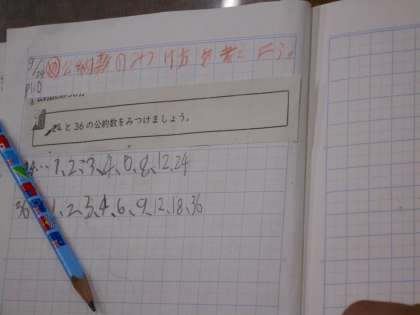 9/24 め 公約数のみつけ方を考えよう。
P110
と36の公約数をみつけましょう。
24…1、2、3、4、6、8、12、24
36 1、2、3、4、6、9、12、18、36